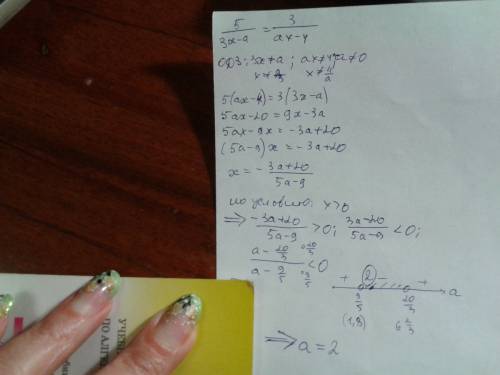 5/(3x-a) = 3/(ax-4)
ОДЗ: 3x≠a; ax≠4; a≠0
x≠a/3 x≠4/a
5(ax-4)=3(3x-a)
5ax-20=9x-3a
5ax-9x=-3a+20
(5a-9)x=-3a+20
x=(-3a+20)/(5a-9)
по условию: x>0
⇒ (-3a+20)/(5a-9) >0; (3a-20)/(5a-9) <0;
(a-20/3)/(a-9/5) <0
+ 2 - + a
9/5 20/3
(1,8) 6 2/3
⇒ a=2